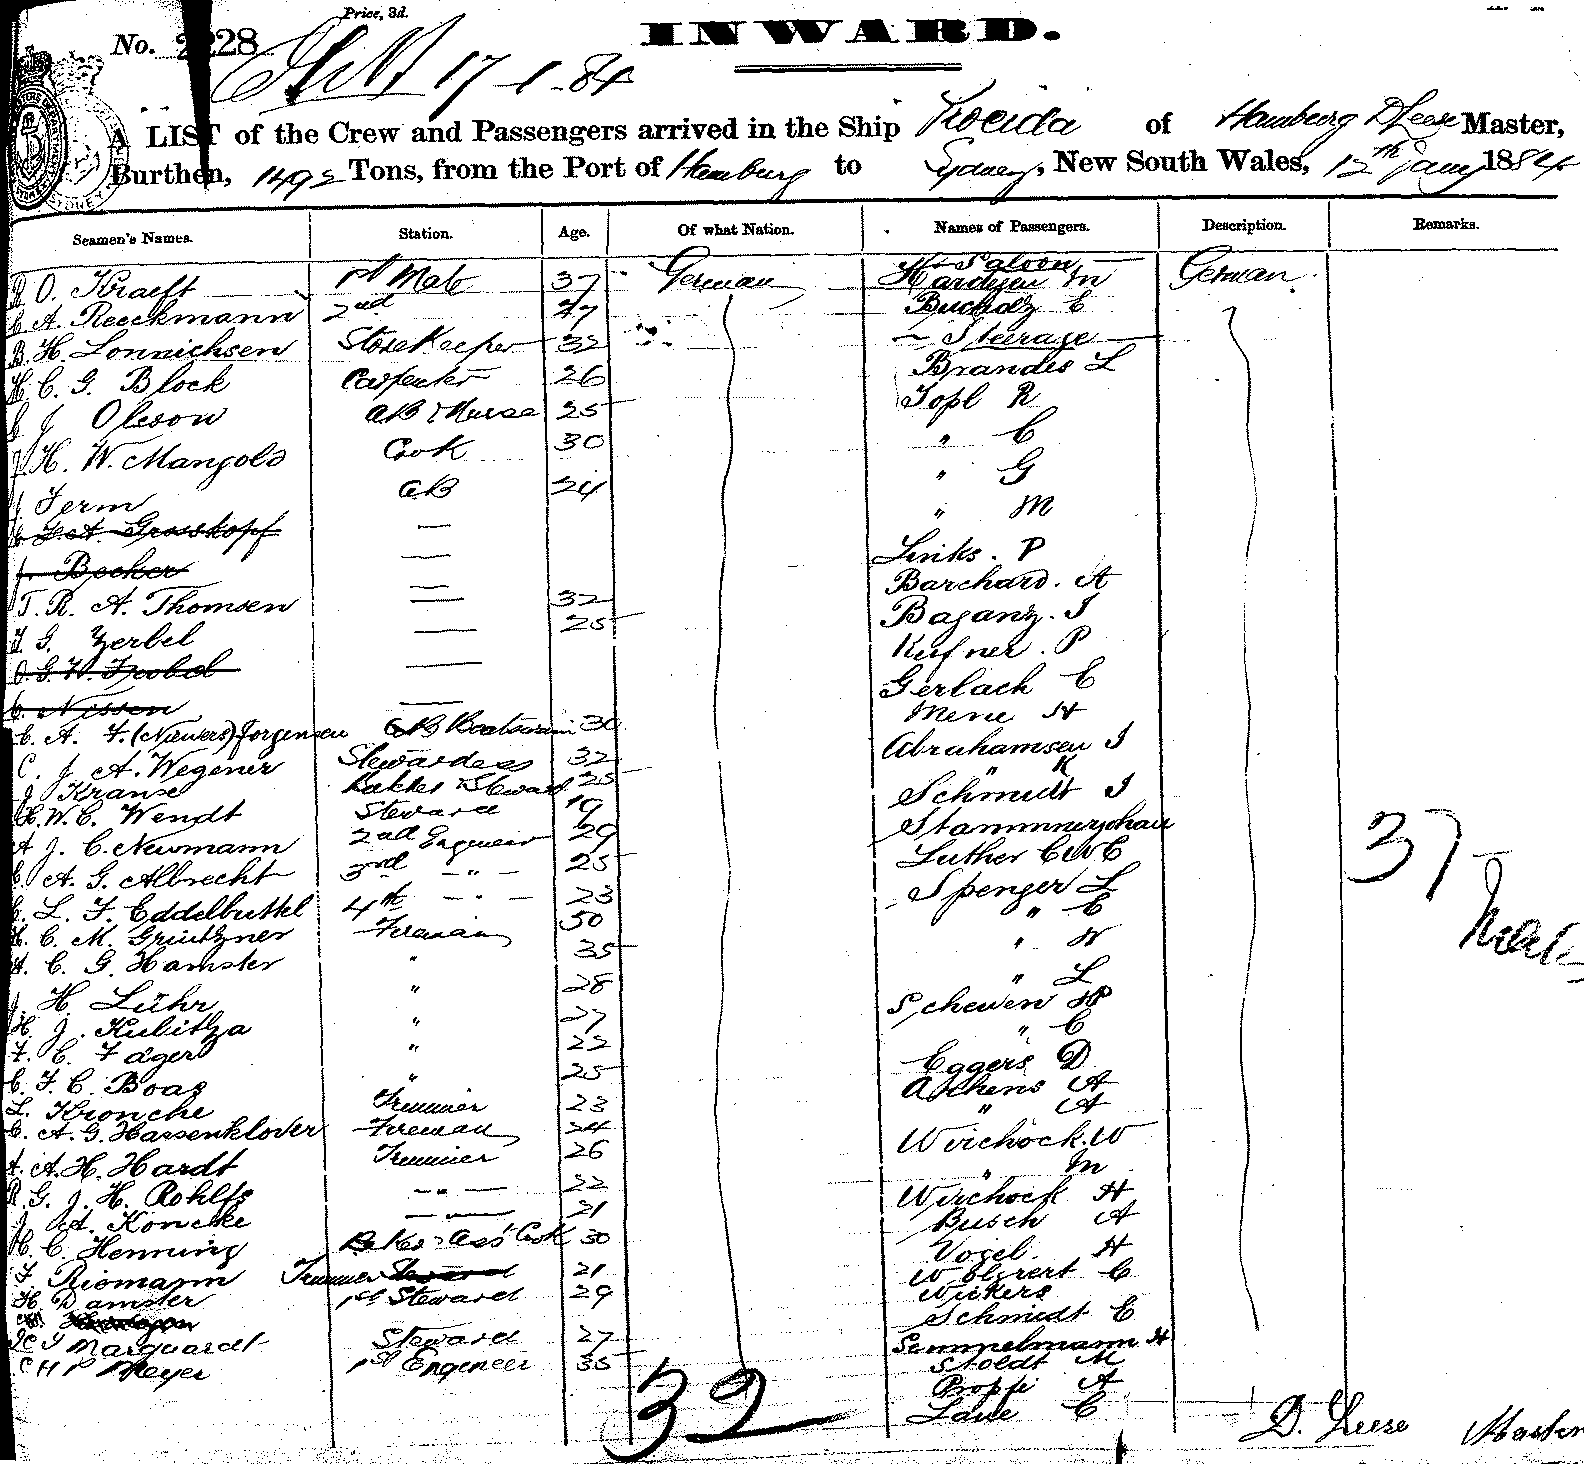 Price, 3d.
No. 2228
INWARD.
17-1-84
A LIST of the Crew and Passengers arrived in the Ship Kocida of Hamburg D Leese Master,
Burthen, 1492 Tons, from the Port of Hamburg to Sydney, New South Wales, 12th Jany 1884
Seamen's Names. Station. Age. Of what Nation. Names of Passengers. Description. Remarks.
O. Kraeft 1st Mate 37 German Saloon German
A. Reeckmann 2nd 27 Hardgen M
H. Lonnichsen Storekeeper 32 Bucholz C
H. C. G. Block Carpenter 26 Steerage
J Oleson AB 25 Brandes L
H. W. Mangold Cook 30 Topl R
Term AB 24 " C
F. A. Grosskopf — " G
J. Becker — " M
T. R. A. Thomsen — 32 Links. P
J G. Zerbel — 25 Barchard. A
O. G. W. Frobel — Baganz. J
C. Nissen — Kufner. P
C. A. F. (Niewers) Jorgensen AB Boatswain 30 Gerlach C
C. J A. Wegener Stewardess 32 Mene H
J Kranse Steward 25 Abrahamsen J
H. W. C. Wendt Steward 19 " K
A J. C. Newmann 2nd Engineer 29 Schmidt J
C A. G. Albrecht 3rd — " — 25 Stammnerjohan
C. L. F. Eddelbuttel 4th — " — 23 Luther C W C
H. C. M. Grutzner Fireman 50 Spenger L
H. C. G. Hamster " 35 " C
J. H. Lühr " 28 " W
H. J. Kubitza " 27 " L
F. C. Fager " 22 Schewen H P
C. F. C. Boas " 25 " C
L. Kronche Trimmer 23 Eggers D
C. A. G. Hassenklover Fireman 24 Athens A
A. A. H. Hardt Trimmer 26 " A
R G. J. H. Rohlfs — " — 22 Wirchock. W
J A. Koncke — — 21 " M
H. C. Henning Baker & Ass' Cook 30 Wirchock H
F. Riemann Trimmer Steward 21 Busch A
H. Damster 1st Steward 29 Vogel. H
Marquardt Steward 27 Wohlrert C
C H P Meyer 1st Engeneer 35 Wickers
Schmidt C
Semmelmann H
Stoldt M
Propfe A
Laue C
37
32
D. Leese Master